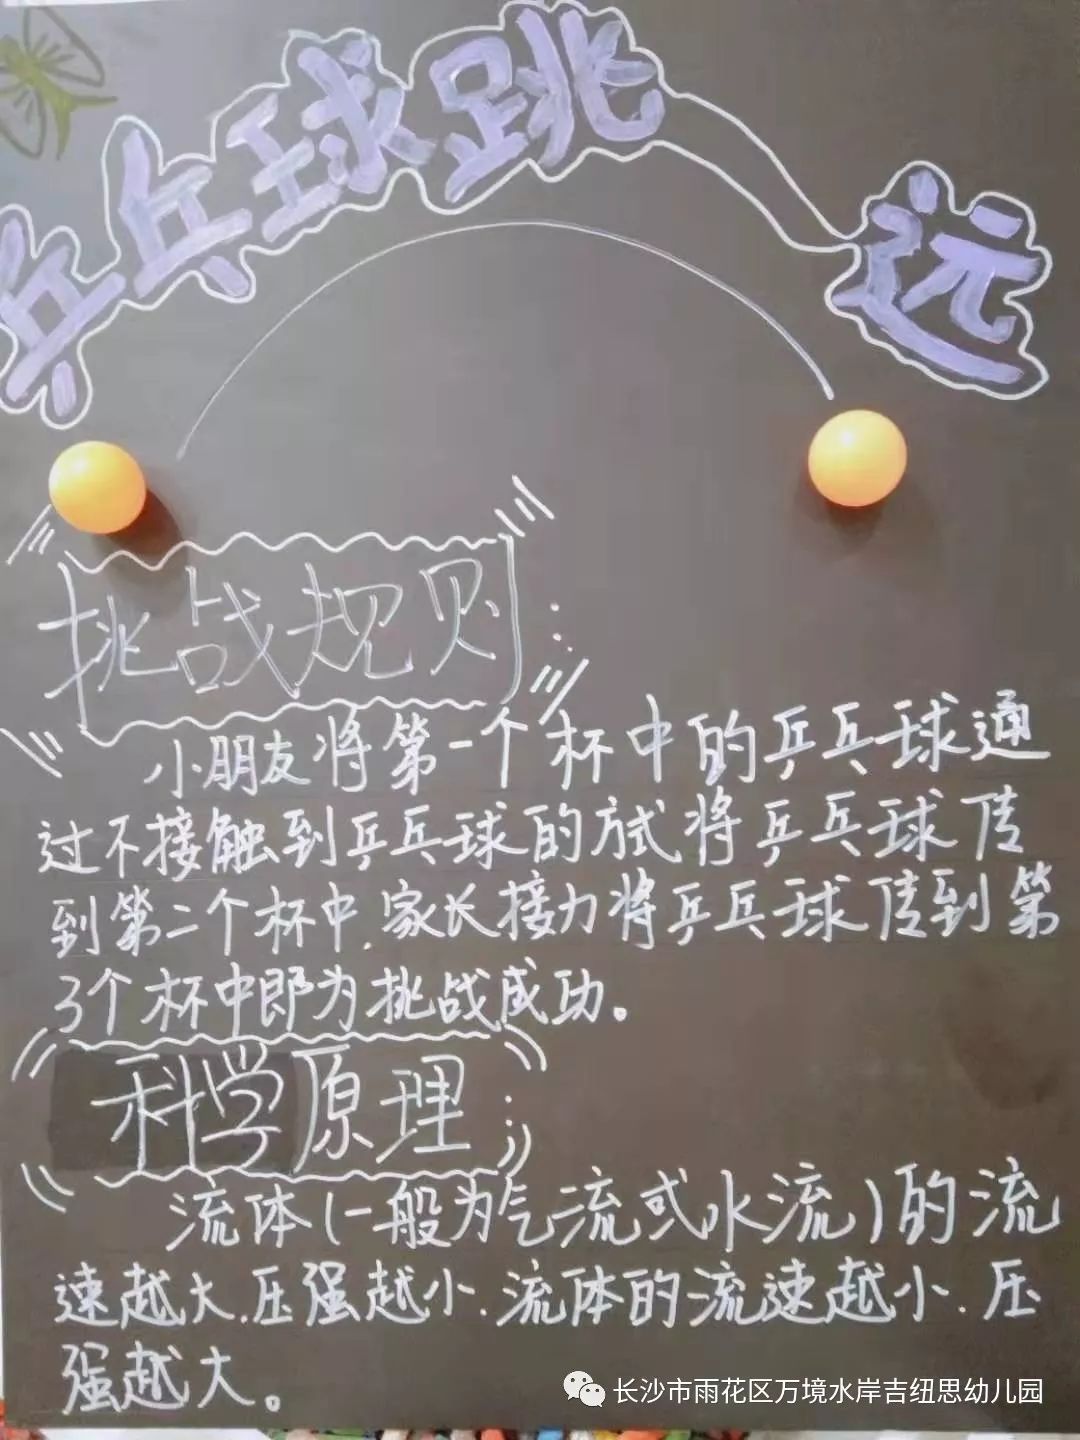 乒乓球跳远
挑战规则：
小朋友将第一个杯中的乒乓球通
过不接触到乒乓球的方式将乒乓球传
到第二个杯中,家长接力将乒乓球传到第
3个杯中即为挑战成功。
科学原理：
流体(一般为气流或水流)的流
速越大,压强越小,流体的流速越小,压
强越大。
长沙市雨花区万境水岸吉纽思幼儿园